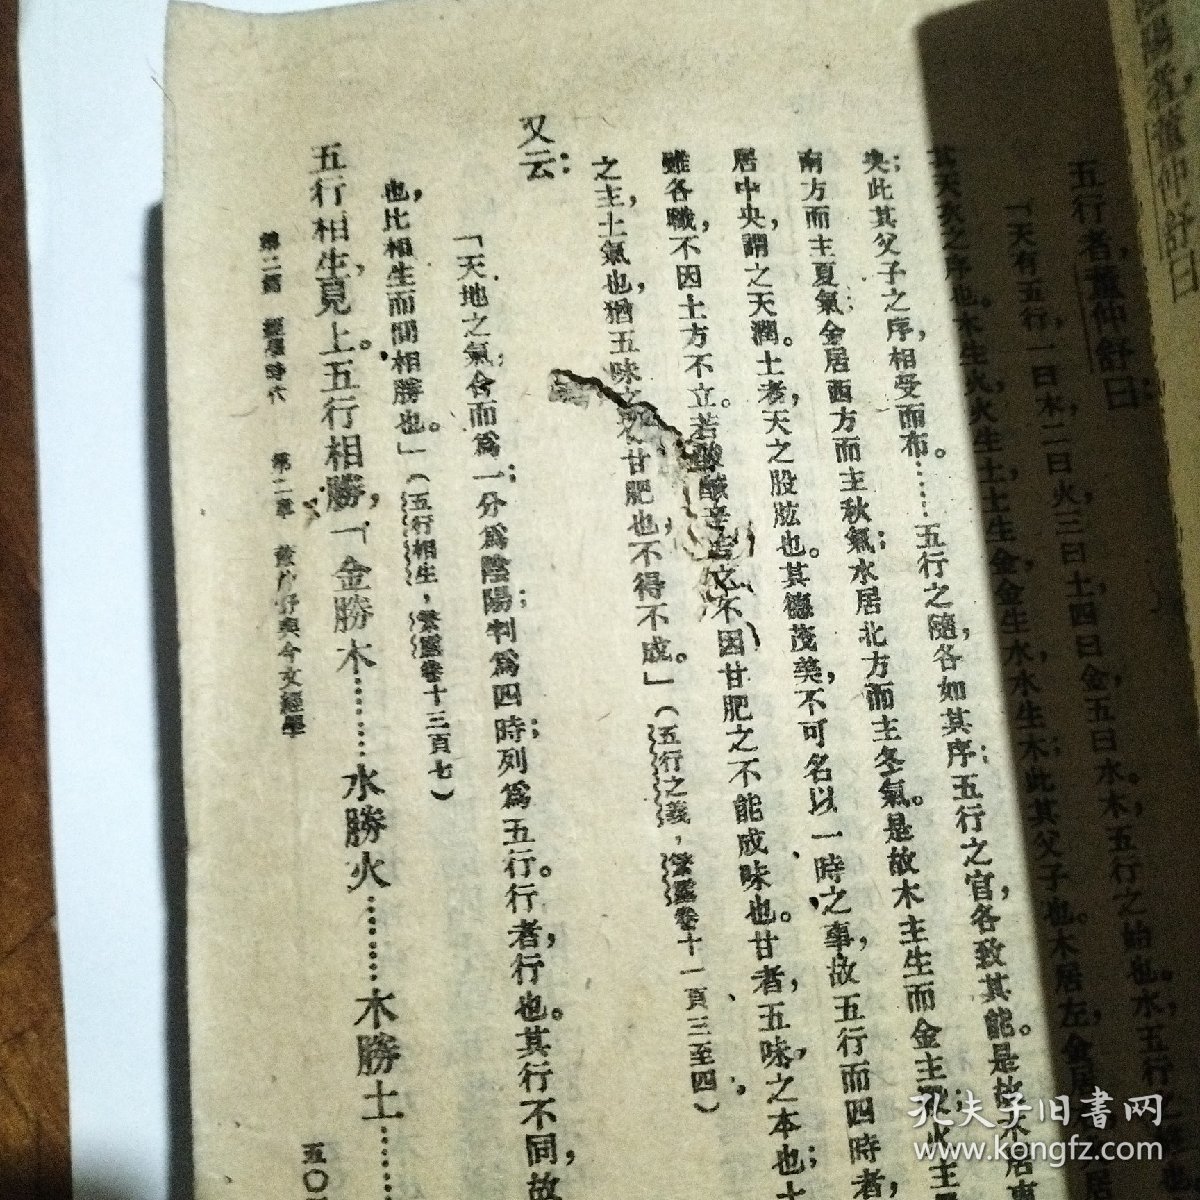 陰陽者,董仲舒曰
五行者,董仲舒曰:
「天有五行,一曰木,二曰火,三曰土,四曰金,五曰水。木,五行之始也。水,五行之
其天次之序也。木生火,火生土,土生金,金生水,水生木,此其父子也。木居左,金居
央;此其父子之序,相受而布。……五行之隨,各如其序;五行之官,各致其能。是故木居東
南方而主夏氣;金居西方而主秋氣;水居北方而主冬氣。是故木主生而金主殺;火主
居中央,謂之天潤。土者,天之股肱也。其德茂美,不可名以一時之事,故五行而四時者,
雖各職,不因土方不立。若酸鹹辛苦之不因甘肥之不能成味也。甘者,五味之本也;土
之主,土氣也,猶五味之有甘肥也,不得不成。」(五行之義,繁露卷十一頁三至四)
又云:
「天地之氣,合而爲一;分爲陰陽;判爲四時;列爲五行。行者,行也。其行不同,故
也,比相生而間相勝也。」(五行相生,繁露卷十三頁七)
五行相生,見上。五行相勝,「金勝木……水勝火……木勝土……
第二篇 經學時代 第二章 董仲舒與今文經學
五〇
孔夫子旧書网
www.kongfz.com